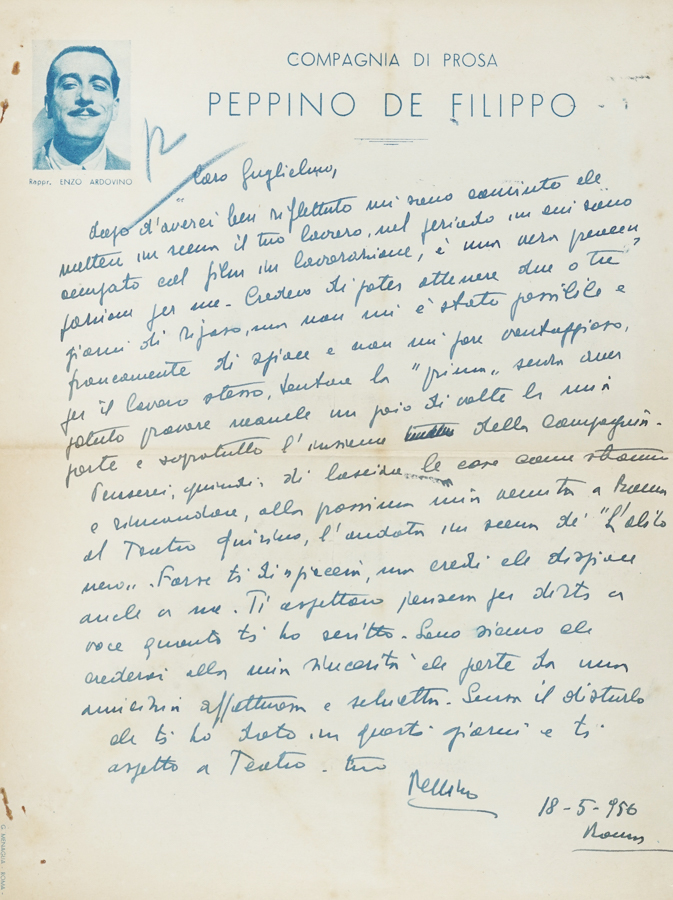 COMPAGNIA DI PROSA
PEPPINO DE FILIPPO
Rappr. ENZO ARDOVINO
Caro Guglielmo,
dopo d'averci ben riflettuto mi sono convinto che
mettere in scena il tuo lavoro, nel periodo in cui sono
occupato col film in lavorazione, è una vera preoccu
pazione per me - Credevo di poter ottenere due o tre
giorni di riposo, ma non mi è stato possibile e
francamente di spiace e non mi pare vantaggioso,
per il lavoro stesso, tentare la "prima" senza aver
potuto provare neanche un paio di volte la mia
parte e sopratutto l'insieme della Compagnia -
Penserei, quindi, di lasciare le cose come stanno
e rimandare, alla prossima mia venuta a Roma
al Teatro Quirino, l'andata in scena de' "L'abito
nero". Forse ti dispiacerà, ma credi che dispiace
anche a me. Ti aspettavo per dirti a
voce quanto ti ho scritto - che
alla mia sincerità che parte da una
amicizia affettuosa e schietta - Scusa il disturbo
che ti ho dato in questi giorni e ti
aspetto a Teatro - tuo
Peppino
18-5-956
Roma
G. MENAGLIA - ROMA -